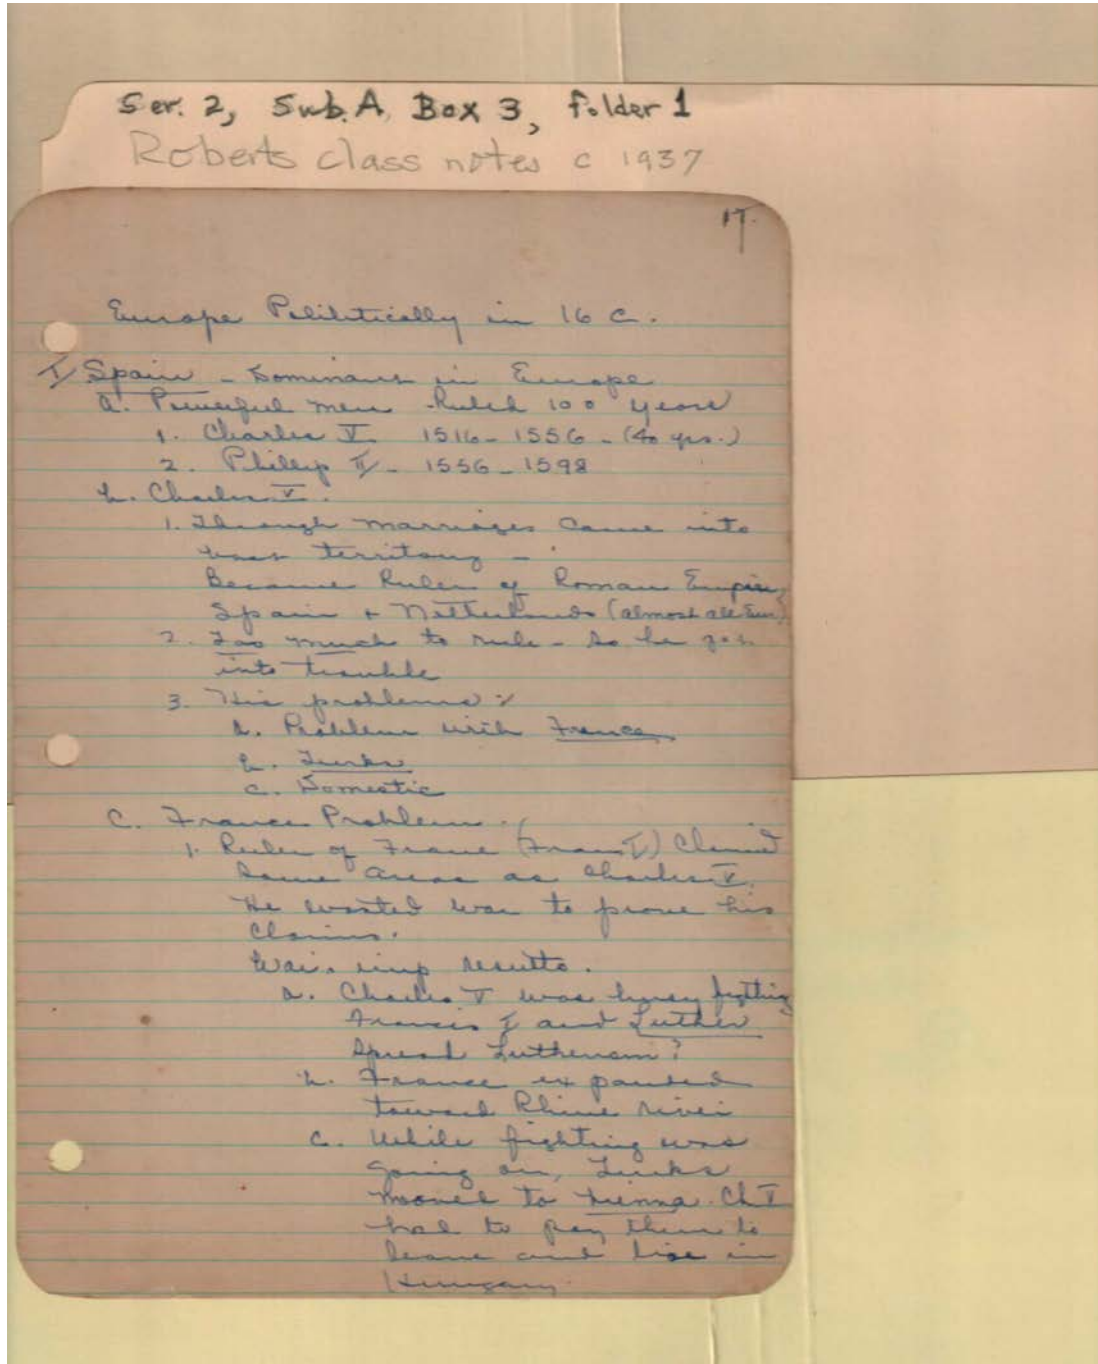 Ser. 2, Sub. A, Box 3, folder 1
Roberts class notes c 1937
17.
Europe Polilitically in 16 C.
I Spain - Dominant in Europe
a. Powerful men - Ruled 100 years
1. Charles V 1516 - 1556 - (40 yrs.)
2. Phillip II - 1556 - 1598
b. Charles V.
1. Through marriages came into
vast territory -
Became Ruler of Roman Empire,
Spain + Netherlands (almost all Eur)
2. Too much to rule - so he got
into trouble
3. His problems :
a. Problem with France
b. Turks
c. Domestic
C. France Problem.
1. Ruler of France (Fran I) Claimed
Same areas as Charles V.
He wanted war to prove his
Claims.
War. imp results.
a. Charles V was busy fighting
Francis I and Luther
Spread Lutheranism?
b. France expanded
toward Rhine river
c. While fighting was
going on, Turks
moved to Vienna. Ch V
had to pay them to
leave and live in
Hungary.